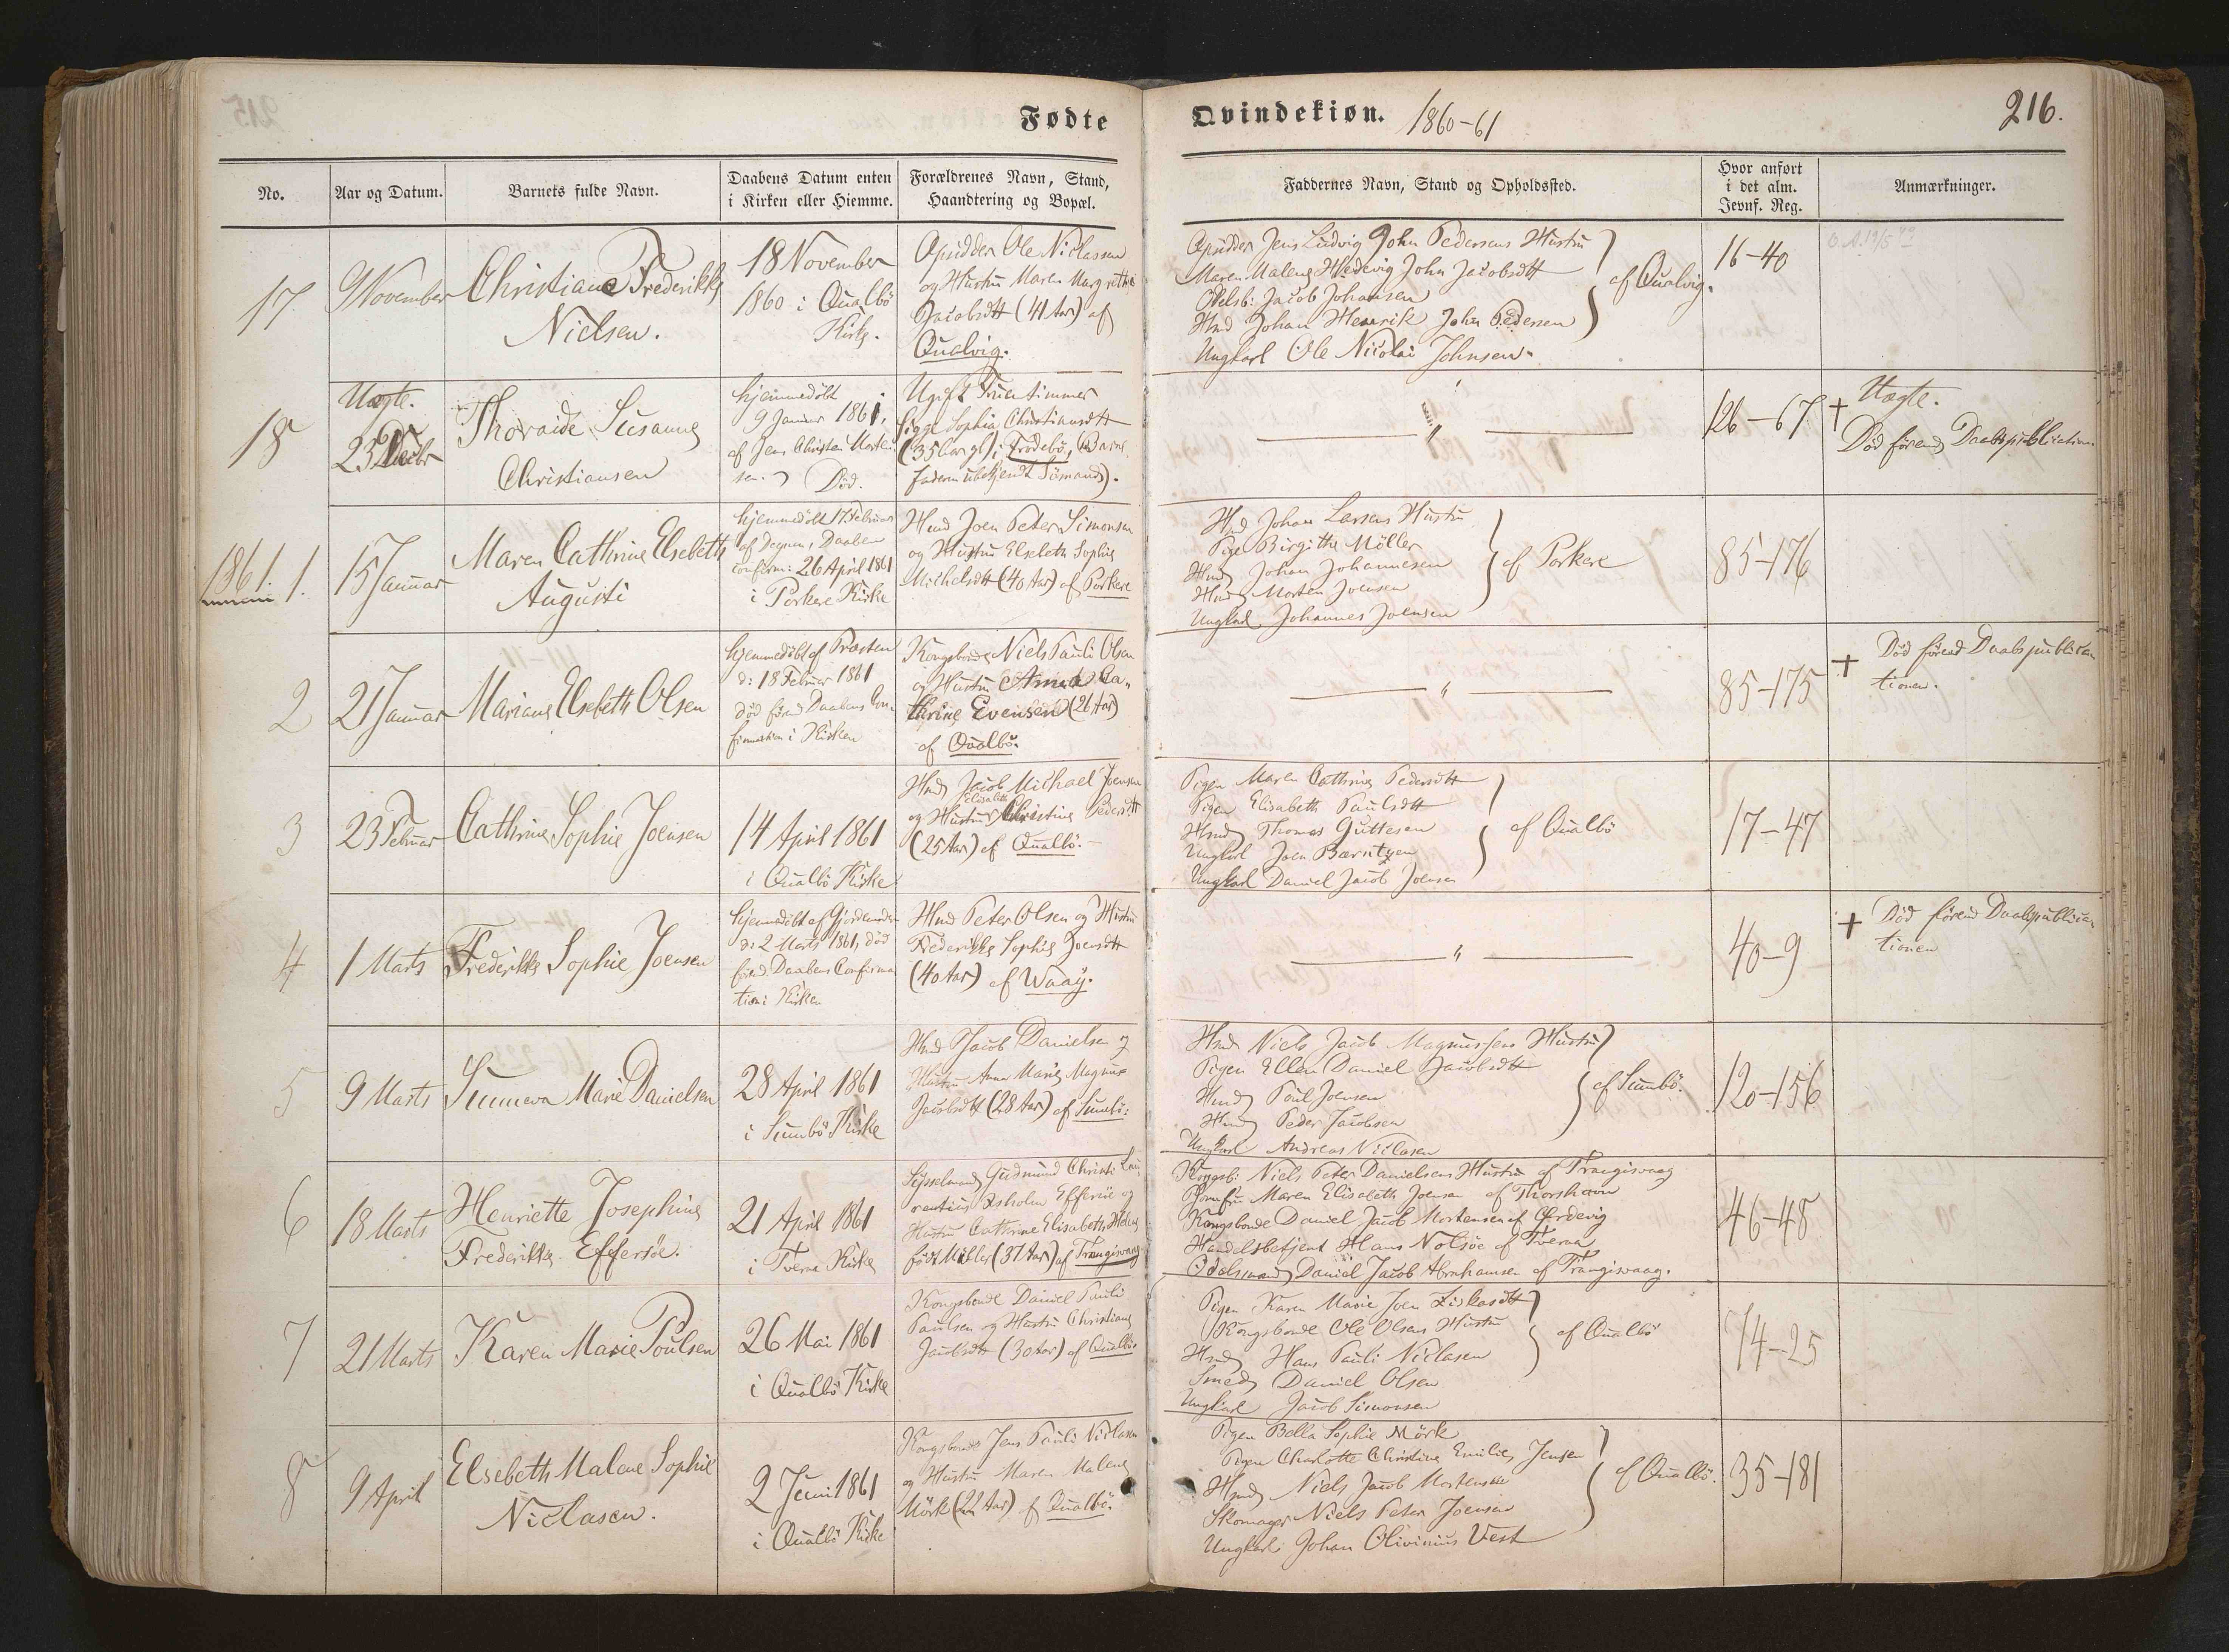 Fødte
Qvindekiøn. 1860-61
216.
No.
Aar og Datum.
Barnets fulde Navn.
Daabens Datum enten
i Kirken eller Hiemme.
Forældrenes Navn, Stand,
Haandtering og Bopæl.
Faddernes Navn, Stand og Opholdssted.
Hvor anført
i det alm.
Jevnf. Reg.
Anmærkninger.
17
9 November
Christiane Frederikke
Nielsen.
18 November
1860 i Qualbö
Kirke.
Opsidder Ole Niclassen
og Hustru Maren Margrethe
Jacobsdtt (41 Aar) af
Qualvig.
Opsidder Jens Ludvig John Pedersens Hustru
Maren Malene Hedevig John Jacobsdtt
Odelsb: Jacob Johansen
Hmd Johan Henrik John Pedersen
Ungkarl Ole Nicolai Johnsen.
af Qualvig.
16-40
18
Uægte.
25 Decbr
Thoraide Susanne
Christiansen
hjemmedöbt
9 Januar 1861,
af Jens Christen Morten-
sen. Död.
Ugift Fruentimmer
Sigge Sophia Christiansdtt
(35 Aar gl) i Frodebö, (Barns
faderen ubekjendt Sömand).
"
126-67
+ Uægte.
Död förend Daabspublication.
1861. 1.
15 Januar
Maren Cathrine Elsebeth
Augusti
hjemmedöbt 17 Februar
af Degnen, Daaben
confirm: 26 April 1861
i Porkere Kirke
Hmd Joen Peter Simonsen
og Hustru Elsebeth Sophie
Michelsdtt (40 Aar) af Porkere
Hmd Johan Larsens Hustru
Pige Birgithe Möller
Hmd Johan Johannesen
Hmd Morten Joensen
Ungkarl Johannes Joensen
af Porkere
85-176
2
21 Januar
Mariane Elsebeth Olsen
hjemmedöbt af Præsten
d: 18 Februar 1861
död förend Daabens Con-
firmation i Kirken
Kongsbonde Niels Pauli Olsen
og Hustru Anna Ca-
thrine Evensen (26 Aar)
af Qualbö.
"
85-175
+ Död förend Daabspublica-
tionen.
3
23 Februar
Cathrine Sophie Joensen
14 April 1861
i Qualbö Kirke
Hmd Jacob Michael Joensen
Elisabeth
og Hustru Christine Pedersdtt
(25 Aar) af Qualbö.
Pigen Maren Cathrine Pedersdtt
Pigen Elisabeth Paulsdtt
Hmd Thomas Guttesen
Ungkarl Joen Bærntzen
Ungkarl Daniel Jacob Joensen
af Qualbö
17-47
4
1 Marts
Frederikke Sophie Joensen
hjemmedöbt af Gjordemoder
d: 2 Marts 1861, död
förend Daabens Confirma-
tion i Kirken
Hmd Peter Olsen og Hustru
Frederikke Sophie Joensdtt
(40 Aar) af Waay.
"
40-9
+ Död förend Daabspublica-
tionen
5
9 Marts
Sunneva Marie Danielsen
28 April 1861
i Sumbö Kirke
Hmd Jacob Danielsen og
Hustru Anna Marie Magnus
Jacobsdtt (28 Aar) af Sumbö.
Hmd Niels Jacob Magnussens Hustru
Pigen Ellen Daniel Jacobsdtt
Hmd Poul Joensen
Hmd Peder Jacobsen
Ungkarl Andreas Niclasen
af Sumbö.
120-156
6
18 Marts
Henriette Josephine
Frederikke Effersöe.
21 April 1861
i Tveraa Kirke
Sysselmand Gudmund Christi Lau-
rentius Isholm Effersöe og
Hustru Cathrine Elisabeth Helene
född Müller (37 Aar) af Trangisvaag
Kongsb: Niels Peter Danielsens Hustru af Trangisvaag
Jomfru Maren Elisabeth Joensen af Thorshavn
Kongsbonde Daniel Jacob Mortensen af Ördevig
Handelsbetjent Hans Nolsöe af Tveraa
Odelsmand Daniel Jacob Abrahamsen af Trangisvaag.
46-48
7
21 Marts
Karen Marie Poulsen
26 Mai 1861
i Qualbö Kirke
Kongsbonde Daniel Pauli
Paulsen og Hustru Christiane
Jacobsdtt (30 Aar) af Qualbö
Pigen Karen Marie Joen
Kongsbonde Ole Olsens Hustru
Hmd Hans Pauli Niclasen
Smed Daniel Olsen
Ungkarl Jacob Simonsen
af Qualbö
14-25
8
9 April
Elsebeth Malene Sophie
Niclasen.
2 Juni 1861
i Qualbö Kirke
Kongsbonde Jens Pauli Niclasen
og Hustru Maren Malene
Mörk (22 Aar) af Qualbö.
Pigen Bella Sophie Mörk
Pigen Charlotte Christine Emilie Jensen
Hmd Niels Jacob Mortensen
Skomager Niels Peter Joensen
Ungkarl Johan Olivinius Vest
af Qualbö.
35-181